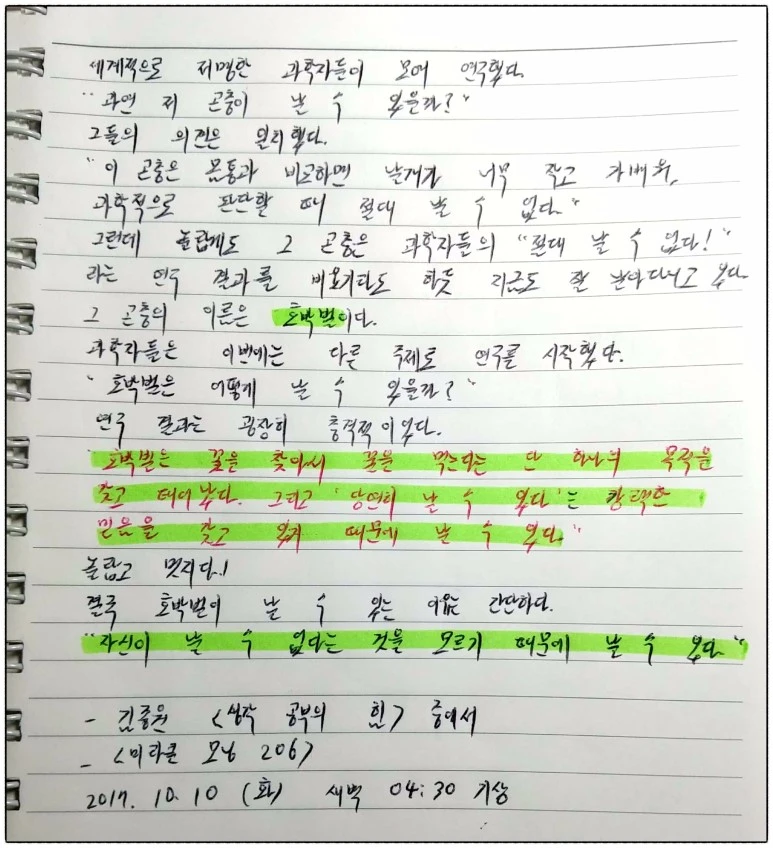 세계적으로 저명한 과학자들이 모여 연구했다.
"과연 저 곤충이 날 수 있을까?"
그들의 의견은 일치했다.
"이 곤충은 몸통과 비교하면 날개가 너무 작고 가벼워,
과학적으로 판단할 때 절대 날 수 없다."
그런데 놀랍게도 그 곤충은 과학자들의 "절대 날 수 없다!"
라는 연구 결과를 비웃기라도 하듯 지금도 잘 날아다니고 있다.
그 곤충의 이름은 호박벌이다.
과학자들은 이번에는 다른 주제로 연구를 시작했다.
"호박벌은 어떻게 날 수 있을까?"
연구 결과는 굉장히 충격적이었다.
"호박벌은 꽃을 찾아서 꿀을 먹는다는 단 하나의 목적을
갖고 태어났다. 그리고 '당연히 날 수 있다'는 강력한
믿음을 갖고 있기 때문에 날 수 있다."
놀랍고 멋지다!
결국 호박벌이 날 수 있는 이유는 간단하다.
"자신이 날 수 없다는 것을 모르기 때문에 날 수 있다."
- 김종원 <생각 공부의 힘> 중에서
- <미라클 모닝 206>
2017. 10. 10 (화) 새벽 04:30 기상